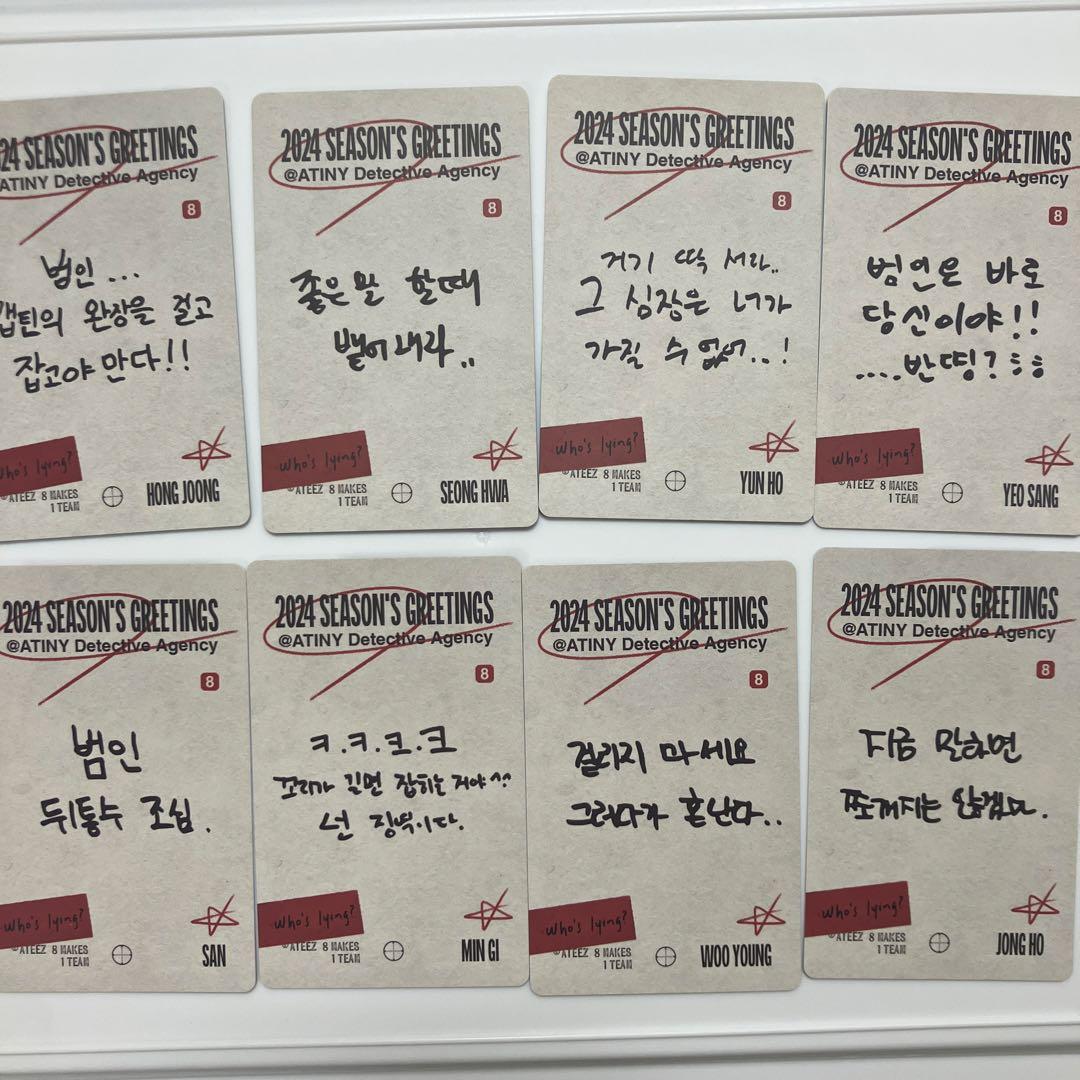 24 SEASON'S GREETINGS
@ATINY Detective Agency
8
범인...
캡틴의 완장을 걸고
잡고야 만다!!
who's lying?
©ATEEZ 8 MAKES
1 TEAM
HONG JOONG
2024 SEASON'S GREETINGS
@ATINY Detective Agency
8
좋은말 할때
뱉어내라..
who's lying?
©ATEEZ 8 MAKES
1 TEAM
SEONG HWA
2024 SEASON'S GREETINGS
@ATINY Detective Agency
8
거기 딱 서라..
그 심장은 너가
가질 수 없어..!
who's lying?
©ATEEZ 8 MAKES
1 TEAM
YUN HO
2024 SEASON'S GREETINGS
@ATINY Detective Agency
8
범인은 바로
당신이야!!
....반띵?
who's lying?
©ATEEZ 8 MAKES
1 TEAM
YEO SANG
2024 SEASON'S GREETINGS
@ATINY Detective Agency
8
범인
뒤통수 조심.
who's lying?
©ATEEZ 8 MAKES
1 TEAM
SAN
2024 SEASON'S GREETINGS
@ATINY Detective Agency
8
ㅋ.ㅋ.ㅋ.ㅋ
꼬리가 길면 잡히는 거야^^
넌 징역이다.
who's lying?
©ATEEZ 8 MAKES
1 TEAM
MIN GI
2024 SEASON'S GREETINGS
@ATINY Detective Agency
8
걸리지 마세요
그러다가 혼난다..
who's lying?
©ATEEZ 8 MAKES
1 TEAM
WOO YOUNG
2024 SEASON'S GREETINGS
@ATINY Detective Agency
8
지금 말하면
쪼개지는 않겠다.
who's lying?
©ATEEZ 8 MAKES
1 TEAM
JONG HO